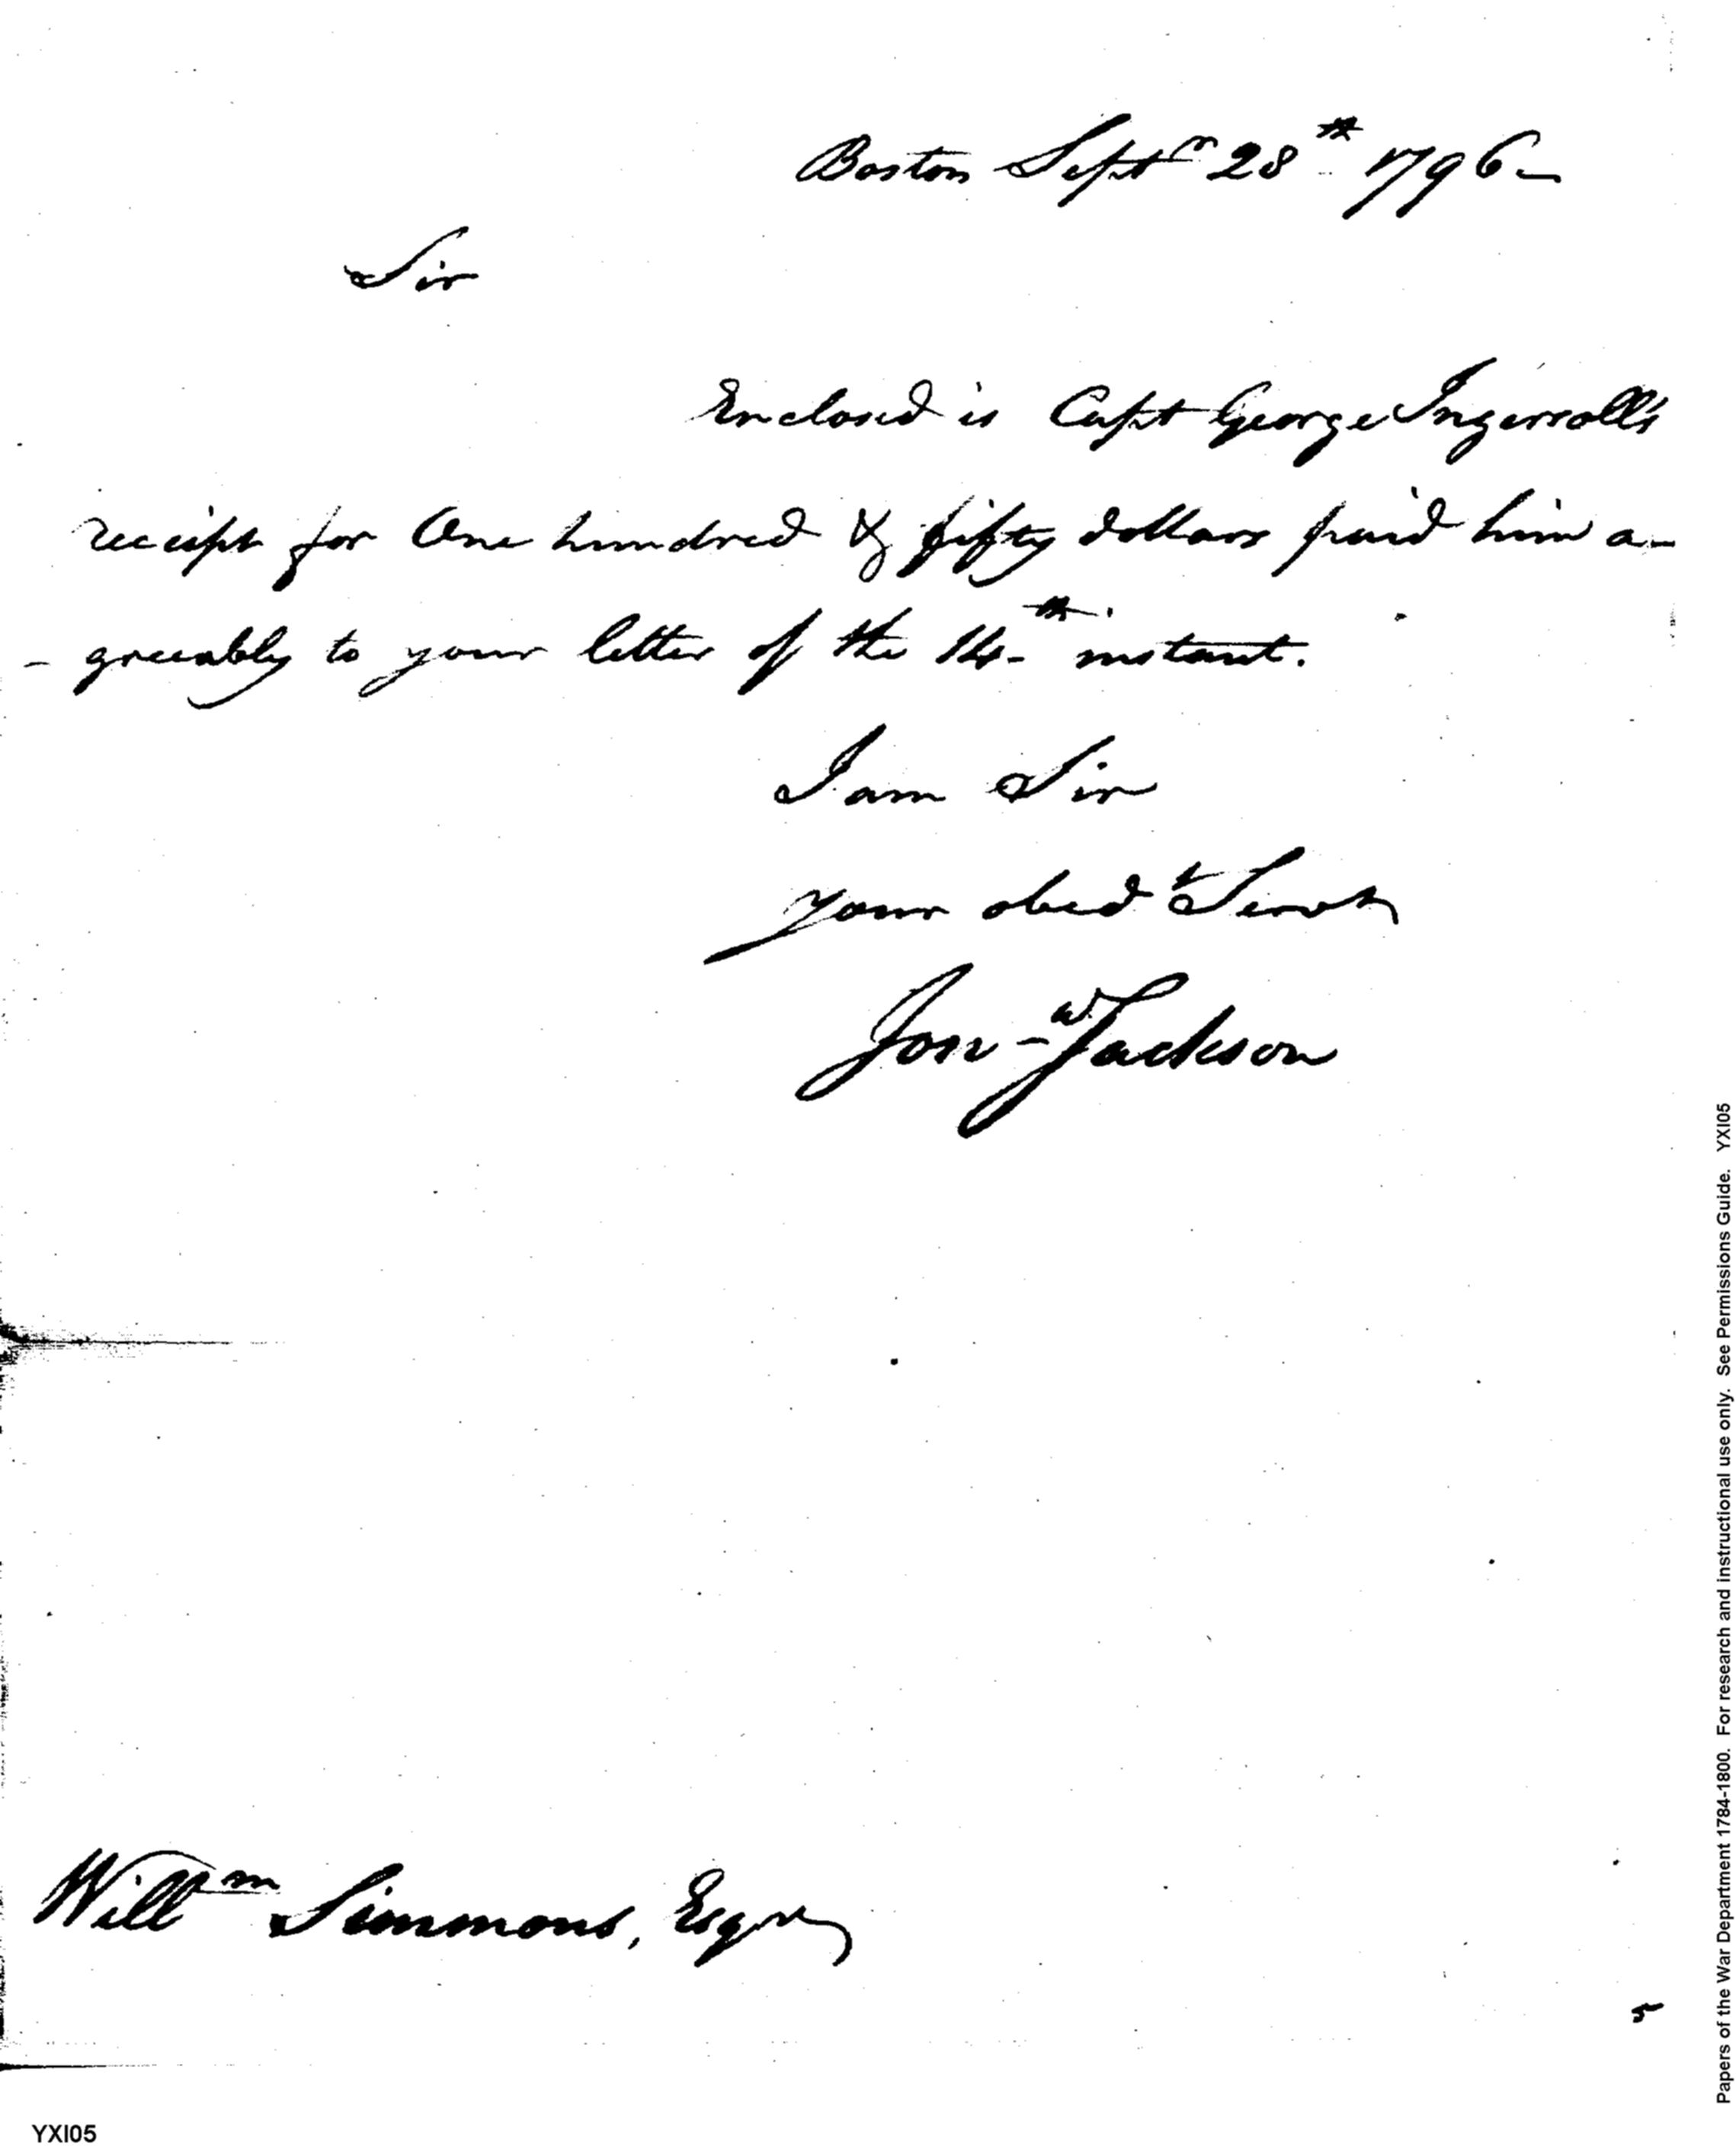 Boston Septr 28th 1796-
Sir
Enclosed is Capt George Ingersoll's
receipt for One hundred & fifty dollars paid him a-
- greeably to your letter of the 14th instant.
I am Sir
your obedt Servt
Jona Jackson
Willm Simmons, Esqre
5
YXI05
Papers of the War Department 1784-1800. For research and instructional use only. See Permissions Guide. YXI05